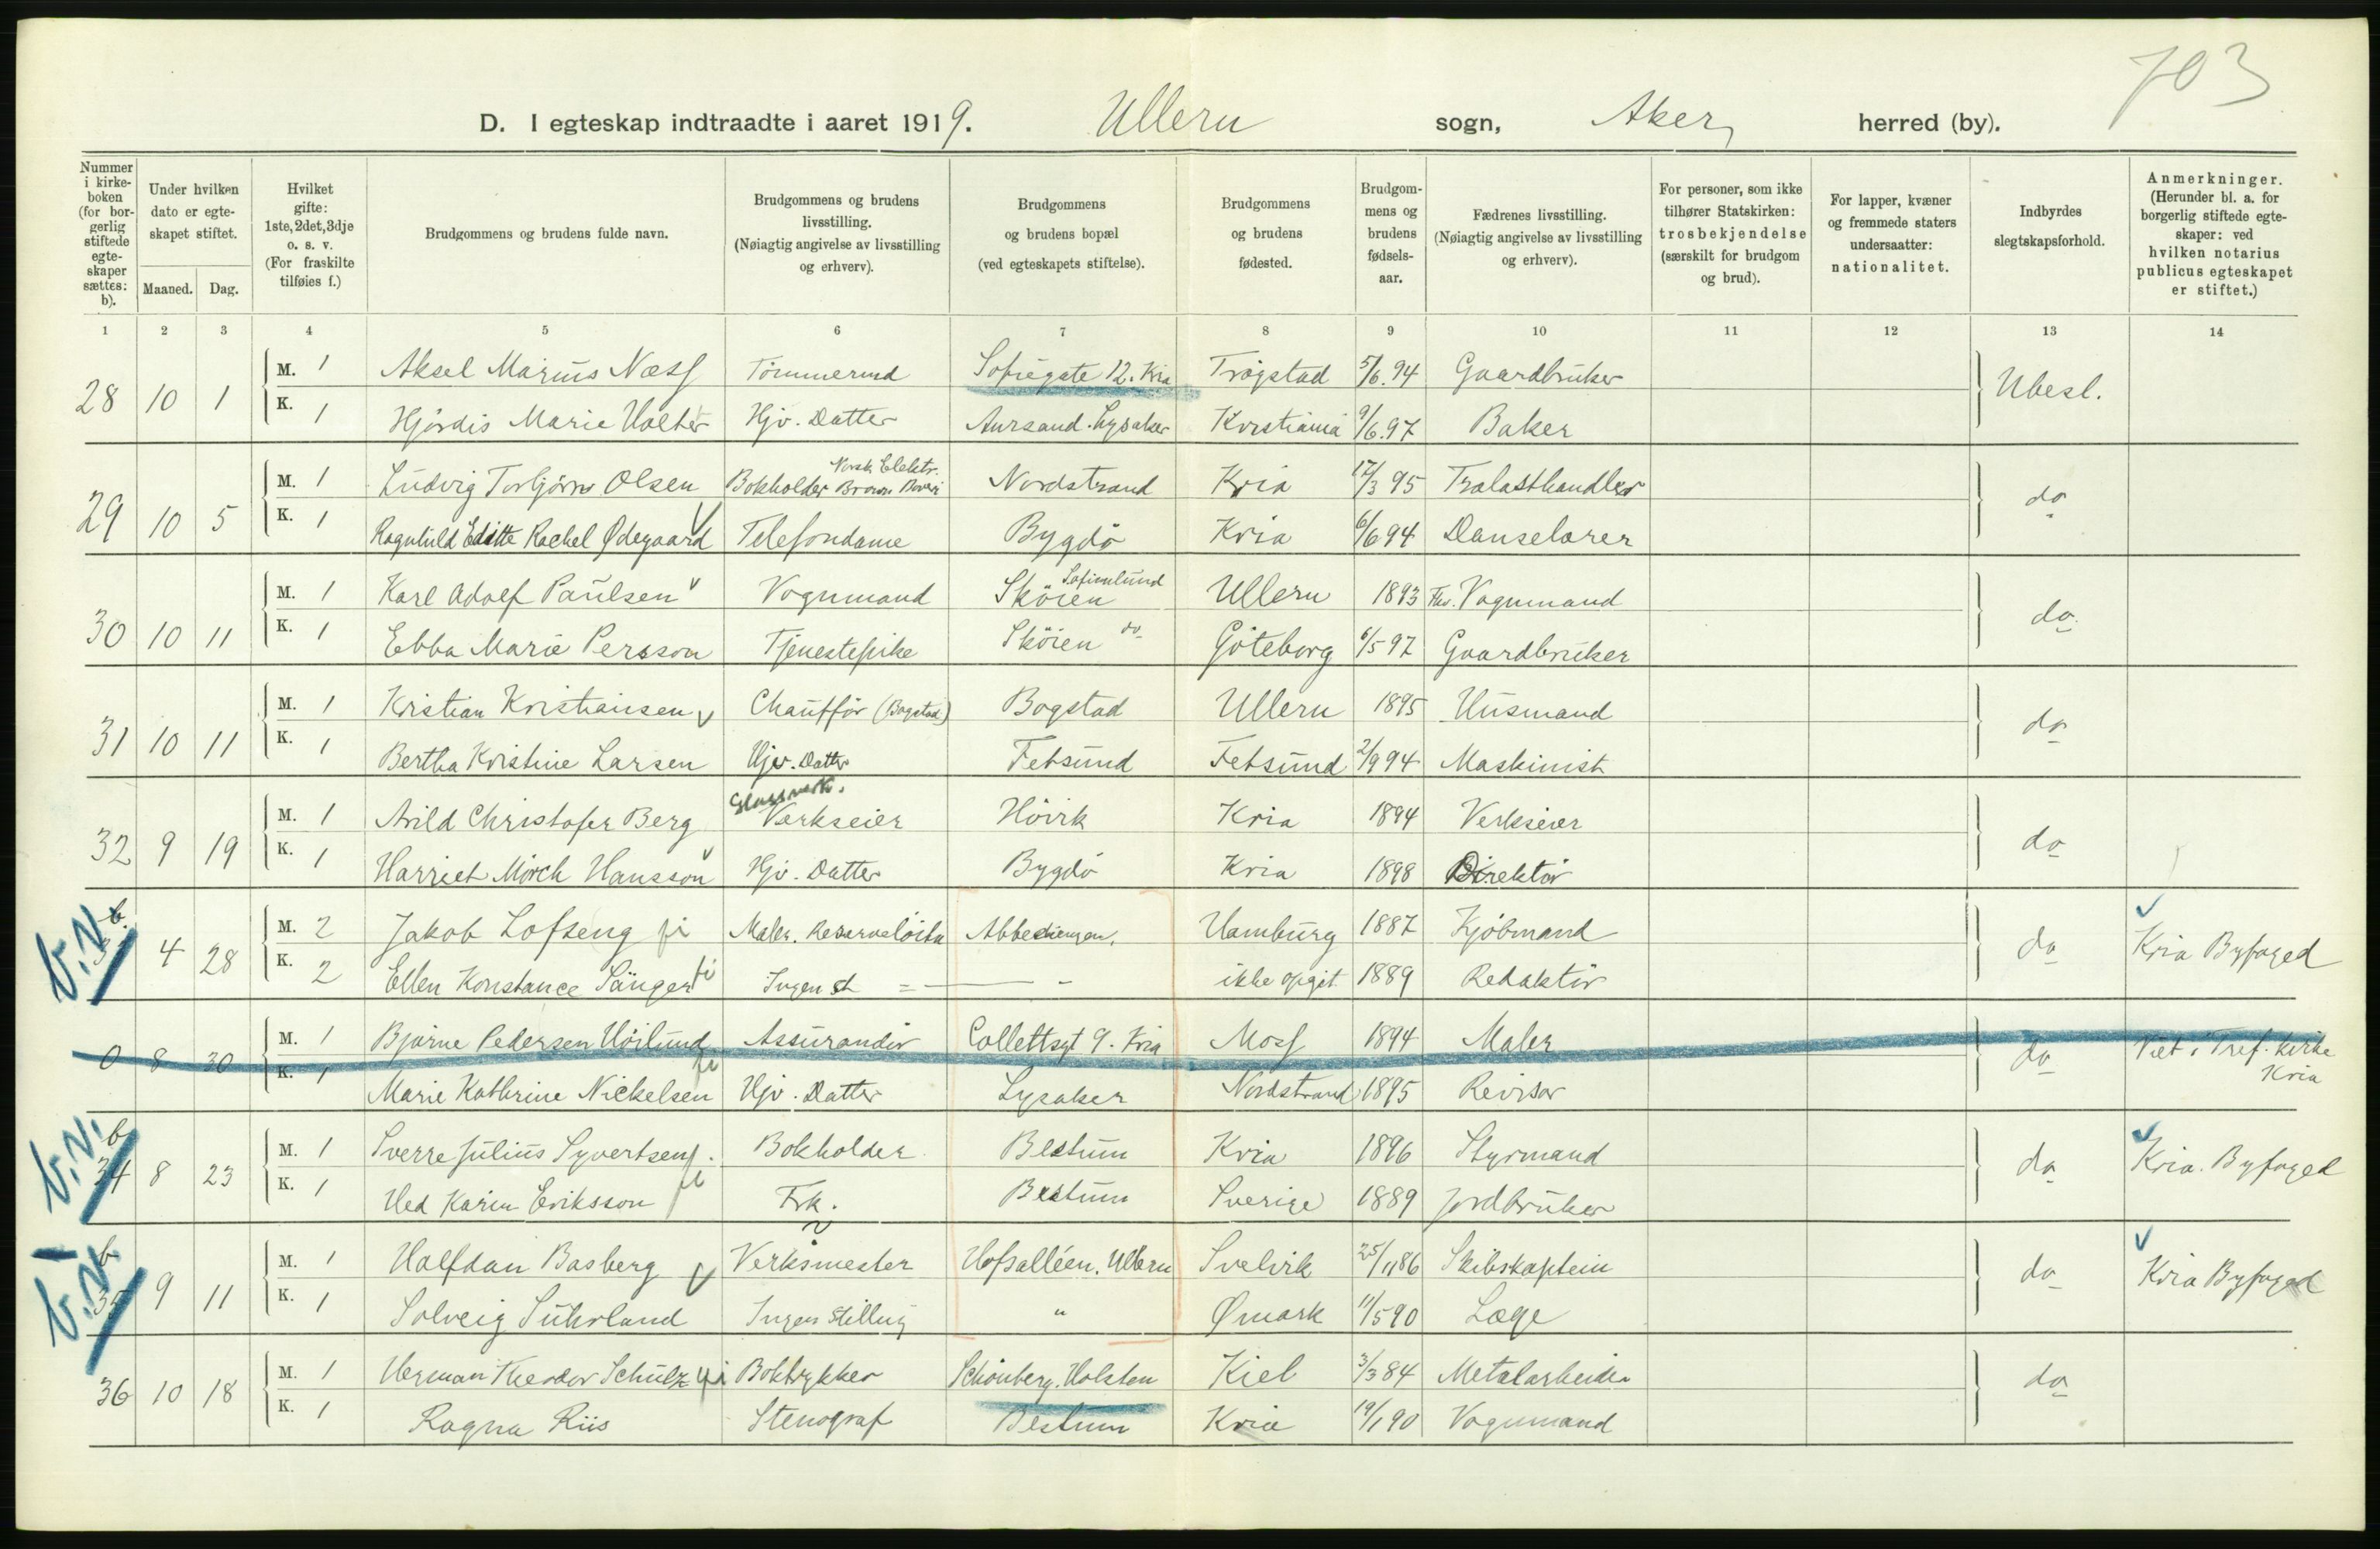 703
D. I egteskap indtraadte i aaret 1919. Ullern sogn, Aker, herred (by).
Nummer i kirke-boken (for bor-gerlig stiftede egte-skaper sættes: b).
Under hvilken dato er egte-skapet stiftet.
Maaned. Dag.
Hvilket gifte: 1ste, 2det, 3dje o. s. v. (For fraskilte tilføies f.)
Brudgommens og brudens fulde navn.
Brudgommens og brudens livsstilling. (Nøiagtig angivelse av livsstilling og erhverv).
Brudgommens og brudens bopæl (ved egteskapets stiftelse).
Brudgommens og brudens fødested.
Brudgom-mens og brudens fødsels-aar.
Fædrenes livsstilling. (Nøiagtig angivelse av livsstilling og erhverv).
For personer, som ikke tilhører Statskirken: trosbekjendelse (særskilt for brudgom og brud).
For lapper, kvæner og fremmede staters undersaatter: nationalitet.
Indbyrdes slegtskapsforhold.
Anmerkninger. (Herunder bl. a. for borgerlig stiftede egte-skaper: ved hvilken notarius publicus egteskapet er stiftet.)
1 2 3 4 5 6 7 8 9 10 11 12 13 14
28 10 1 M. 1 Aksel Marius Næss Tømmermd Sofiegate 12. Kria Trøgstad 5/6.94 Gaardbruker Ubesl.
K. 1 Hjördis Marie Holter Hjv. Datter Aursand. Lysaker Kristiania 9/6.97 Baker
29 10 5 M. 1 Ludvig Torbjörn Olsen Bokholder Norsk Elektr. Brown Boveri Nordstrand Kria 17/3 95 Trælasthandler do
K. 1 Ragnhild Editte Rachel Ødegaard Telefondame Bygdö Kria 6/6 94 Danselærer
30 10 11 M. 1 Karl Adolf Paulsen Vognmand Sköien Sofienlund Ullern 1893 Fhv. Vognmand do.
K. 1 Ebba Marie Persson Tjenestepike Sköien do Göteborg 6/5 97 Gaardbruker
31 10 11 M. 1 Kristian Kristiansen Chaufför (Bogstad) Bogstad Ullern 1895 Husmand do
K. 1 Bertha Kristine Larsen Hjv. Datter Fetsund Fetsund 2/9 94 Maskinist
32 9 19 M. 1 Arild Christofer Berg Glassverk. Verkseier Hövik Kria 1894 Verkseier do
K. 1 Harriet Mörch Hansson Hjv. Datter Bygdö Kria 1898 Direktör
b. 4 28 M. 2 Jakob Lofseng Maler. Hamburg 1887 Kjöbmand do Kria Byfoged
K. 2 Ellen Konstance Sänger Ingen st ikke opgit 1889 Redaktör
0 8 30 M. 1 Bjarne Pedersen Höilund Assurandör Collettsgt 9. Kria Moss 1894 Maler do Viet i Tref. Kirke Kria
K. 1 Marie Kathrine Nickelsen Hjv. Datter Lysaker Nordstrand 1895 Revisor
b 34 8 23 M. 1 Sverre Julius Syvertsen Bokholder Bestum Kria 1896 Styrmand do Kria. Byfoged
K. 1 Hed Karin Eriksson Frk. Bestum Sverige 1889 Jordbruker
b 35 9 11 M. 1 Halfdan Basberg Verksmester Hofsalléen. Ullern Svelvik 25/11 86 Skibskaptein do Kria Byfoged
K. 1 Solveig Suhrland Ingen Stilling " Ømark 11/5 90 Læge
36 10 18 M. 1 Herman Theodor Schulz Boktrykker Schönberg. Holsten Kiel 3/3 84 Metalarbeider do
K. 1 Ragna Riis Stenograf Bestum Kria 19/1 90 Vognmand